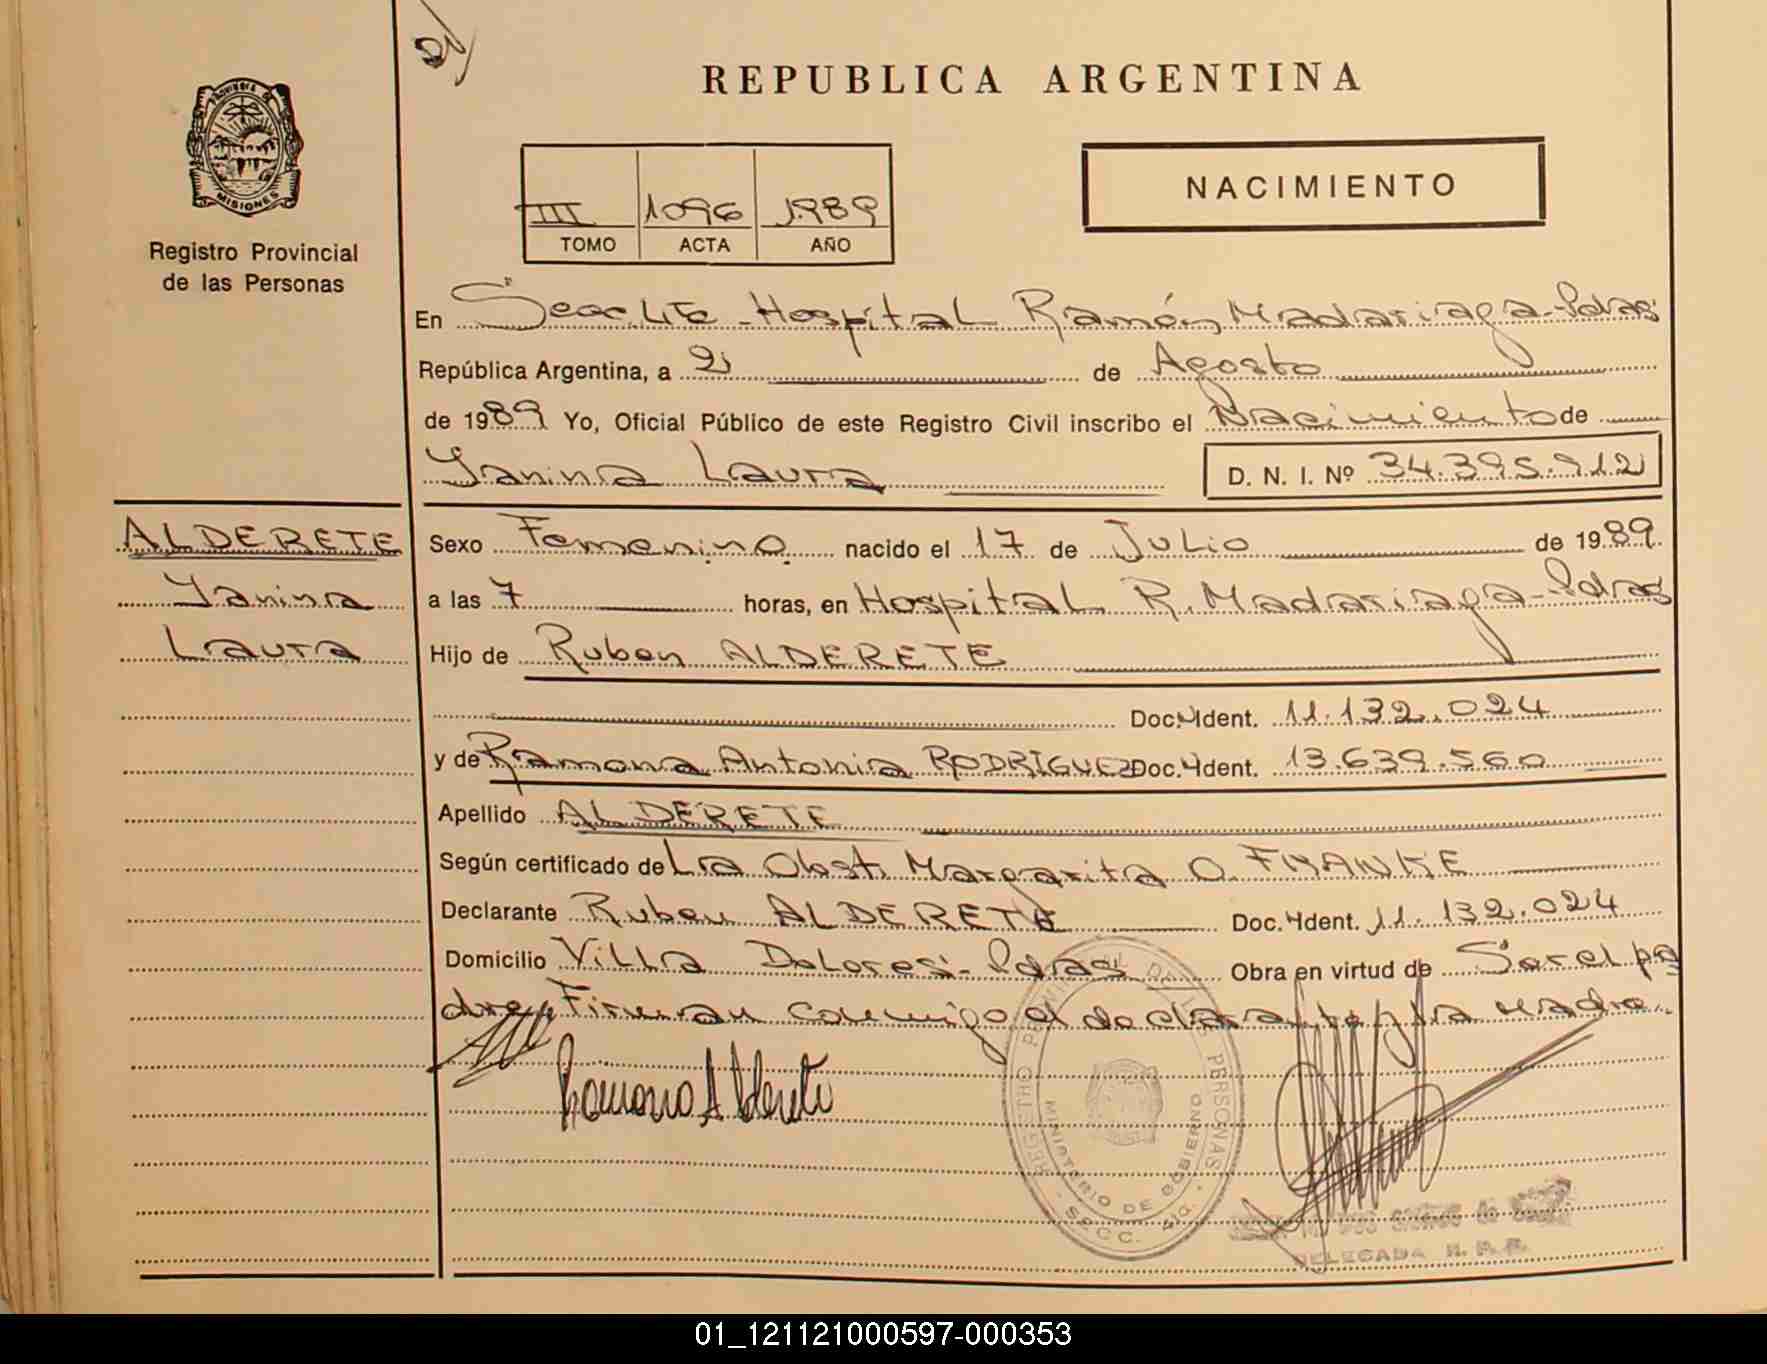 REPUBLICA ARGENTINA
PROVINCIA DE
MISIONES
Registro Provincial
de las Personas
III 1096 1989
TOMO ACTA AÑO
NACIMIENTO
En Secc. Lte - Hospital Ramón Madariaga - Pdas
República Argentina, a 2 de Agosto
de 1989 Yo, Oficial Público de este Registro Civil inscribo el Nacimiento de
Yanina Laura D. N. I. Nº 34.395.912
ALDERETE
Yanina
Laura
Sexo Femenino nacido el 17 de Julio de 1989.
a las 7 horas, en Hospital R. Madariaga - Pdas
Hijo de Ruben ALDERETE
Doc. Ident. 11.132.024
y de Ramona Antonia RODRIGUEZ Doc. Ident. 13.639.560
Apellido ALDERETE
Según certificado de La Obst. Margarita O. FRANKE
Declarante Ruben ALDERETE Doc. Ident. 11.132.024
Domicilio Villa Dolores - Pdas Obra en virtud de Ser el pa
dre, Firman conmigo el declarante y la madre.
Ramona A Alderete
REGISTRO PROVINCIAL DE LAS PERSONAS
MINISTERIO DE GOBIERNO
DELEGADA R. P. P.
01_121121000597-000353